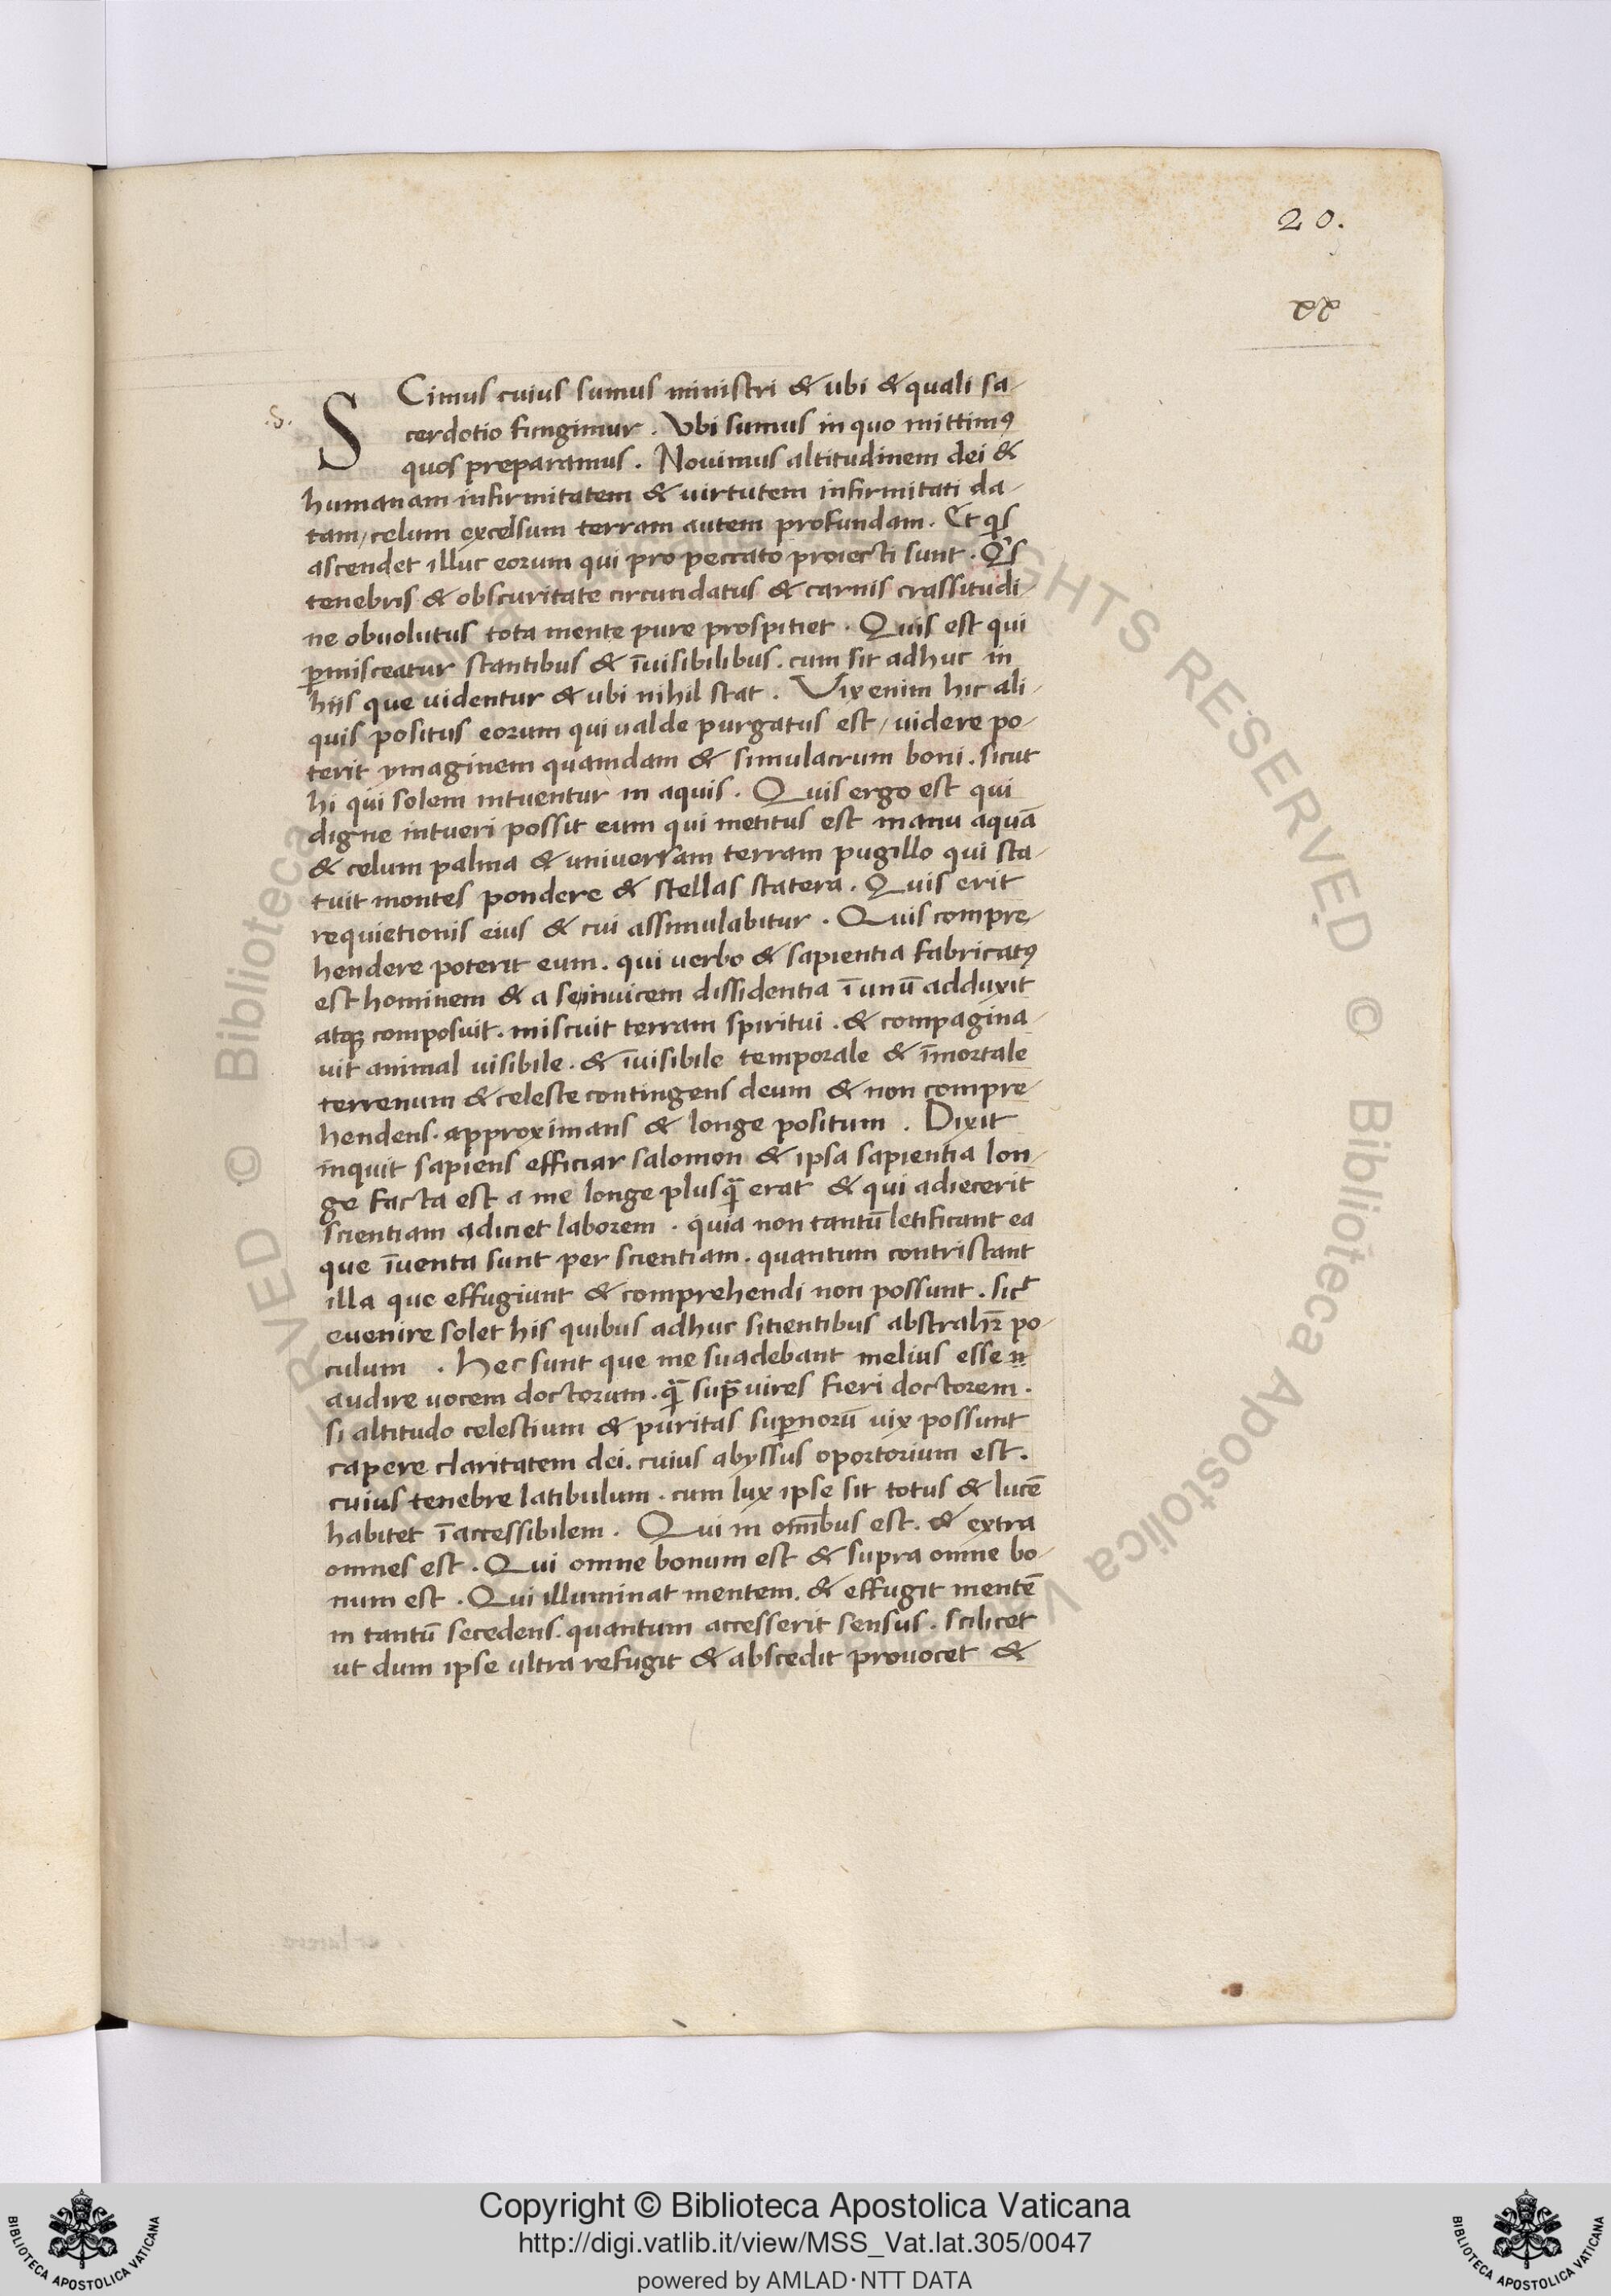 20.
SCimus cuius sumus ministri & ubi & quali sa-
.s.
cerdotio fungimur. Vbi sumus in quo mittimꝰ
quos preparamus. Nouimus altitudinem dei &
humanam infirmitatem & uirtutem infirmitati da-
tam, celum excelsum terram autem profundam. Et qͥs
ascendet illuc eorum qui pro peccato proiecti sunt. Qͥs
tenebris & obscuritate circundatus & carnis crassitudi-
ne obuolutus tota mente pure prospitiet. Quis est qui
ꝑmisceatur stantibus & īuisibilibus. cum sit adhuc in
hiis que uidentur & ubi nihil stat. Vix enim hic ali-
quis positus eorum qui ualde purgatus est, uidere po-
terit ymaginem quamdam & simulacrum boni. sicut
hi qui solem intuentur in aquis. Quis ergo est qui
digne intueri possit eum qui metitus est manu aquā
& celum palma & universam terram pugillo qui sta-
tuit montes pondere & stellas statera. Quis erit
requietionis eius & cui assimulabitur. Quis compre-
hendere poterit eum. qui uerbo & sapientia fabricatꝰ
est hominem & a seinuicem dissidentia ī unū adduxit
atqꝫ composuit. miscuit terram spiritui. & compagina-
uit animal uisibile. & īuisibile temporale & īmortale
terrenum & celeste contingens deum & non compre-
hendens. approximans & longe positum. Dixit
inquit sapiens efficiar salomon & ipsa sapientia lon-
ge facta est a me longe plusqᷓ erat & qui adiecerit
scientiam adiciet laborem. quia non tantū letificant ea
que īuenta sunt per scientiam. quantum contristant
illa que effugiunt & comprehendi non possunt. sict̄
euenire solet his quibus adhuc sitientibus abstrahr̄ po-
culum. Hec sunt que me suadebant melius esse n
audire uocem doctorum. qᷓ sup̄ uires fieri doctorem.
si altitudo celestium & puritas suꝑnorū uix possunt
capere claritatem dei. cuius abyssus oportorium est.
cuius tenebre latibulum. cum lux ipse sit totus & lucē
habitet īaccessibilem. Qui in om̄ibus est. & extra
omnes est. Qui omne bonum est & supra omne bo-
num est. Qui illuminat mentem. & effugit mentē
in tantū secedens. quantum accesserit sensus. scilicet
ut dum ipse ultra refugit & abscedit prouocet &
Copyright © Biblioteca Apostolica Vaticana
http://digi.vatlib.it/view/MSS_Vat.lat.305/0047
powered by AMLAD·NTT DATA
BIBLIOTECA APOSTOLICA VATICANA
BIBLIOTECA APOSTOLICA VATICANA